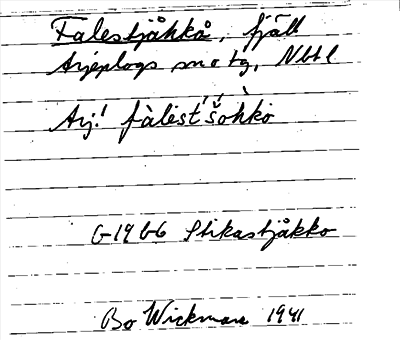 Falestjåhkå, fjäll
Arjeplogs sn o tg, Nbtl
Arj! fàlēst´šòhkò
G 19 b6 Stikastjåkko
Bo Wickman 1941